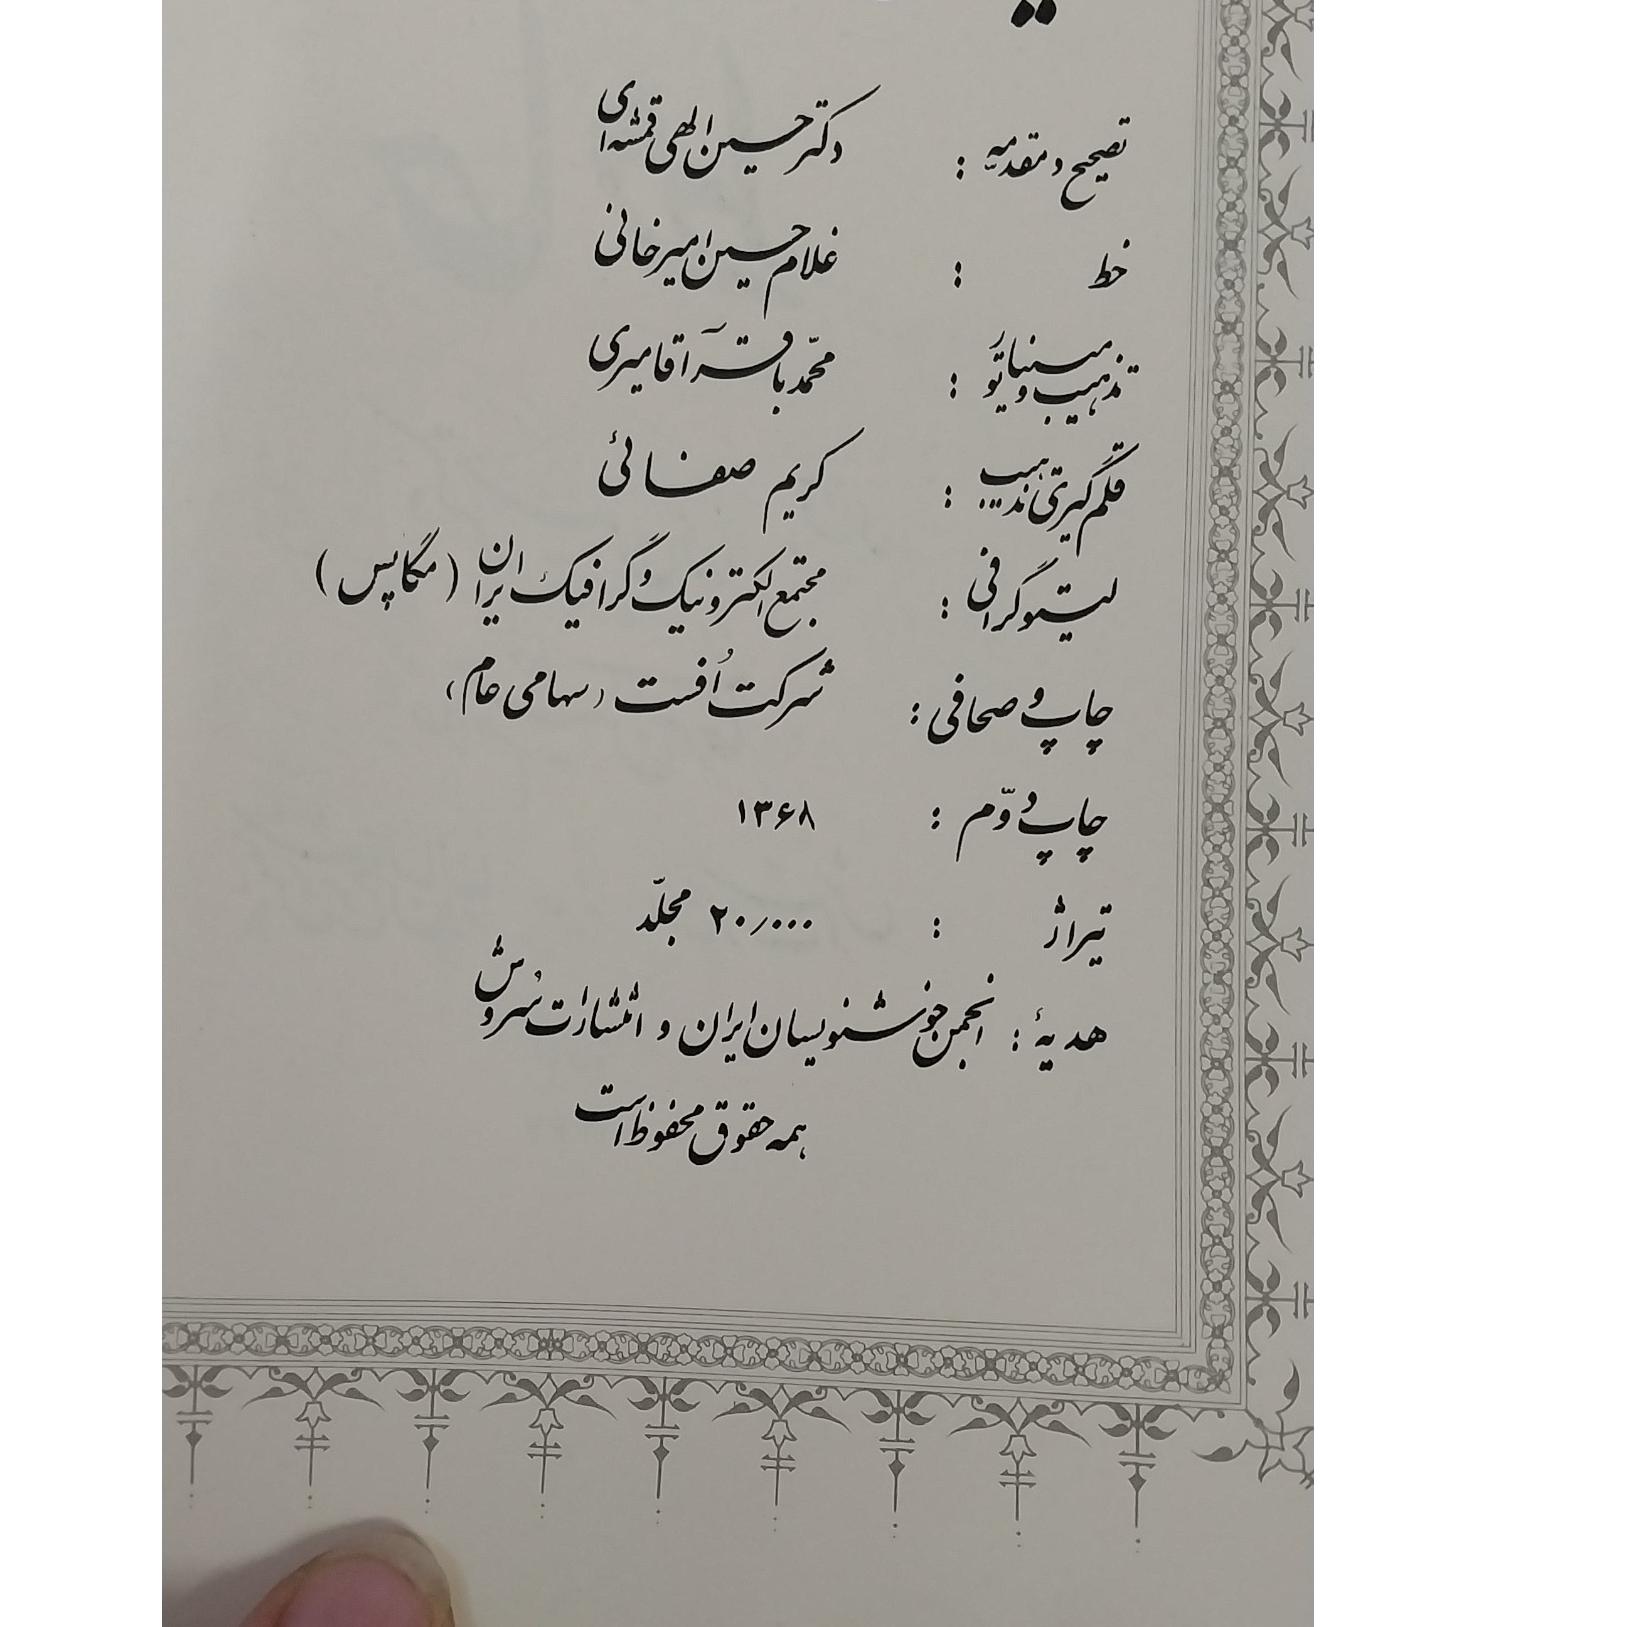 تصحیح و مقدمه : دکتر حسین الهی قمشه‌ای
خط : غلامحسین امیرخانی
تذهیب و مینیاتور : محمّدباقر آقامیری
قلم‌گیری تذهیب : کریم صفائی
لیتوگرافی : مجتمع الکترونیک و گرافیک ایران (مگاپس)
چاپ و صحافی : شرکت اُفست (سهامی عام)
چاپ دوّم : ۱۳۶۸
تیراژ : ۲۰/۰۰۰ مجلّد
هدیهٔ : انجمن خوشنویسان ایران و انتشارات سُروش
همه حقوق محفوظ است